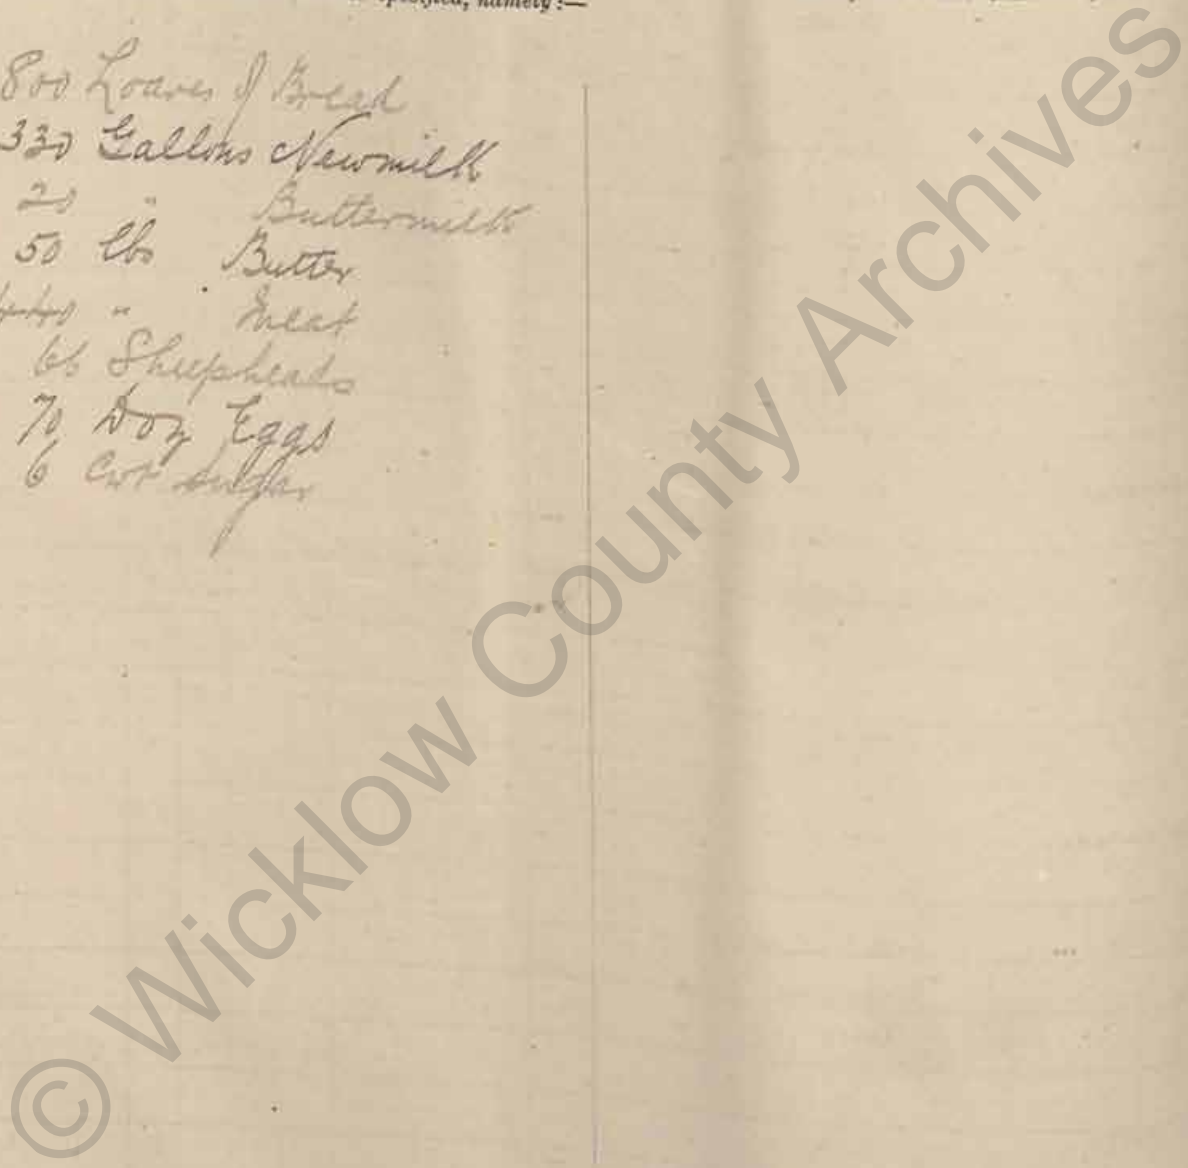 specified, namely :—
800 Loaves of Bread
330 Gallons Newmilk
20 " Buttermilk
50 lbs Butter
440 " Meat
66 Sheepheads
70 Doz Eggs
6 Cwt Sugar
© Wicklow County Archives